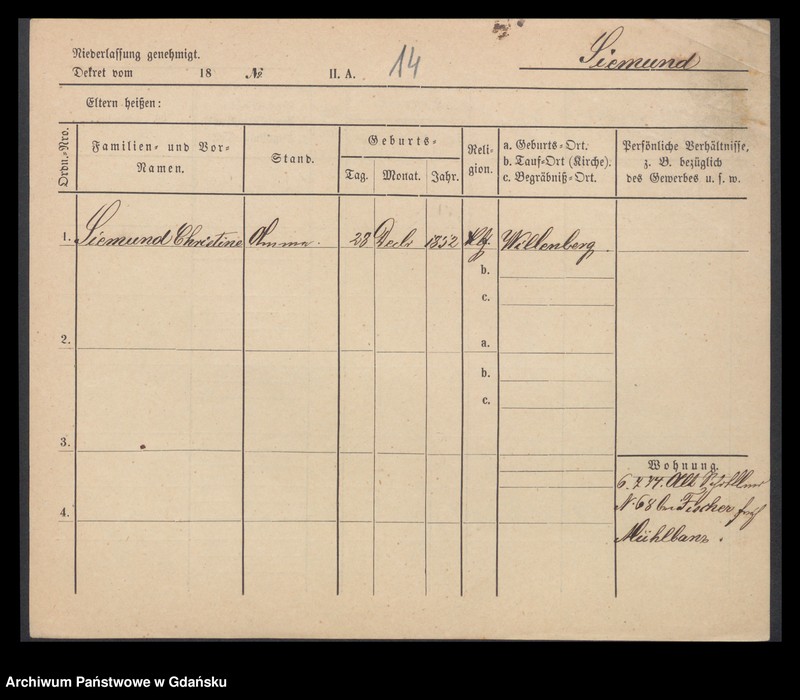 Niederlassung genehmigt.
Dekret vom 18 № II. A. 14
Siemund
Eltern heißen:
Ordn.-Nro.
Familien- und Vor-
Namen.
Stand.
Geburts-
Tag. Monat. Jahr.
Reli-
gion.
a. Geburts-Ort.
b. Tauf-Ort (Kirche).
c. Begräbniß-Ort.
Persönliche Verhältnisse,
z. B. bezüglich
des Gewerbes u. s. w.
1. Siemund Christine Amme. 28 Decbr 1852 Willenberg.
b.
c.
2. a.
b.
c.
3.
Wohnung.
6. 7. 74. Alt Schottland
N. 68 bei Fischer
4.
Mühlbanz.
Archiwum Państwowe w Gdańsku